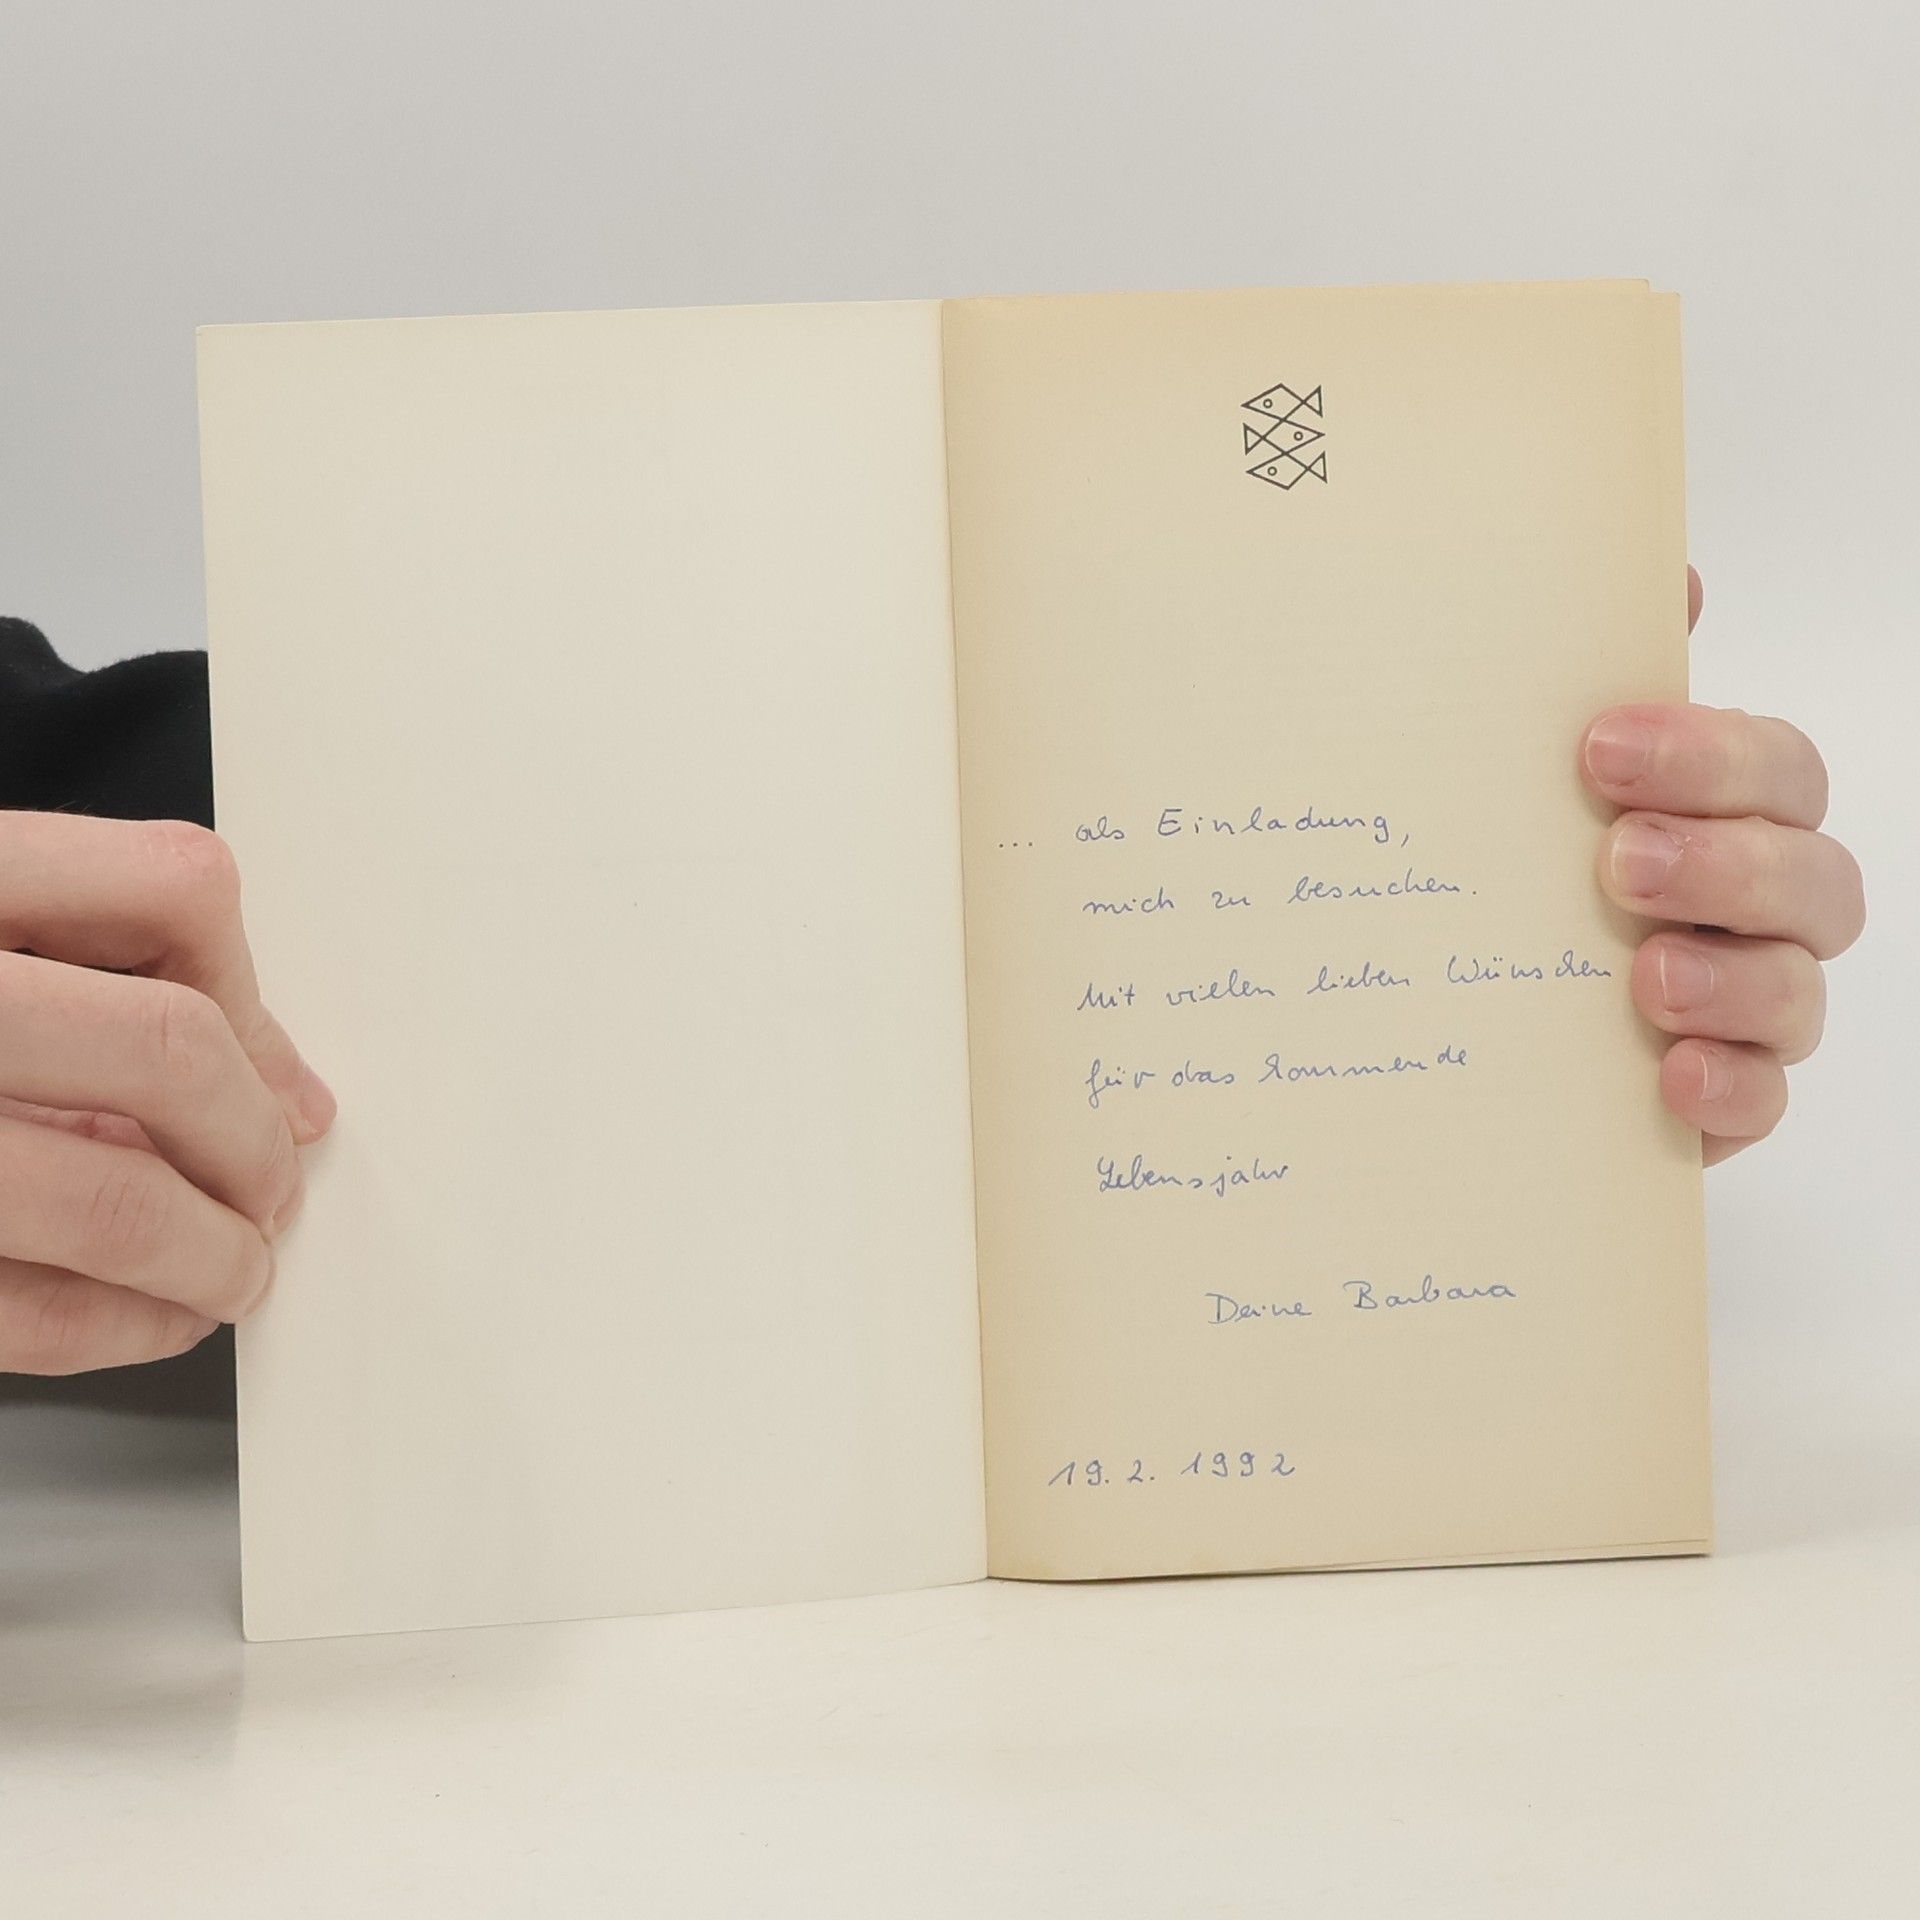 ... als Einladung,
mich zu besuchen.
Mit vielen lieben Wünschen
für das kommende
Lebensjahr
Deine Barbara
19.2.1992